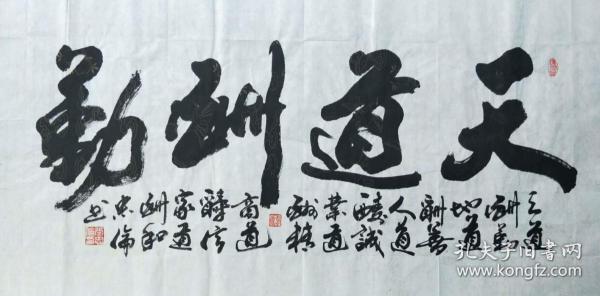 天道酬勤
天道
酬勤
地道
酬善
人道
酬誠
業道
酬精
商道
酬信
家道
酬和
忠倫
书
孔夫子旧书网
www.kongfz.com